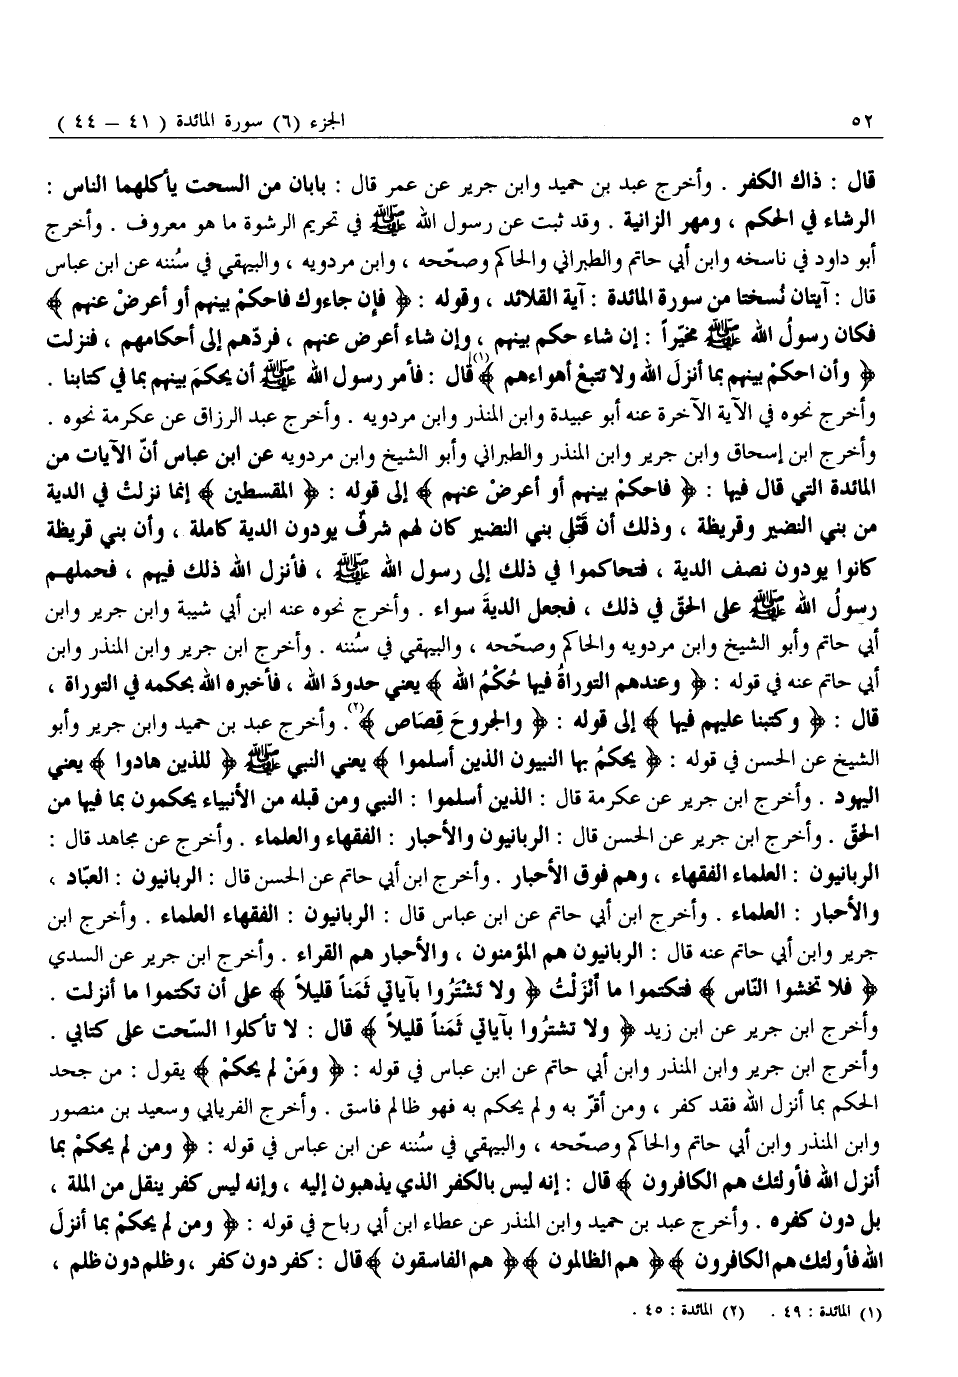 ٥٢ الجزء (٦) سورة المائدة ( ٤١ – ٤٤ )
قال : ذاك الكفر . وأخرج عبد بن حميد وابن جرير عن عمر قال : بابان من السحت يأكلهما الناس :
الرشاء في الحكم ، ومهر الزانية . وقد ثبت عن رسول الله ﷺ في تحريم الرشوة ما هو معروف . وأخرج
أبو داود في ناسخه وابن أبي حاتم والطبراني والحاكم وصحّحه ، وابن مردويه ، والبيهقي في سُننه عن ابن عباس
قال : آيتان نُسختا من سورة المائدة : آية القلائد ، وقوله : ﴿ فإن جاءوك فاحكمْ بينهم أو أعرضْ عنهم ﴾
فكان رسولُ الله ﷺ مخيّراً : إن شاء حكم بينهم ، وإن شاء أعرض عنهم ، فردّهم إلى أحكامهم ، فنزلت
﴿ وأن احكمْ بينهم بما أنزلَ الله ولا تتبعْ أهواءهم ﴾(١) قال : فأمر رسول الله ﷺ أن يحكمَ بينهم بما في كتابنا .
وأخرج نحوه في الآية الآخرة عنه أبو عبيدة وابن المنذر وابن مردويه . وأخرج عبد الرزاق عن عكرمة نحوه .
وأخرج ابن إسحاق وابن جرير وابن المنذر والطبراني وأبو الشيخ وابن مردويه عن ابن عباس أنّ الآيات من
المائدة التي قال فيها : ﴿ فاحكمْ بينهم أو أعرضْ عنهم ﴾ إلى قوله : ﴿ المقسطين ﴾ إنما نزلتْ في الدية
من بني النضير وقريظة ، وذلك أن قَتْلى بني النضير كان لهم شرفٌ يودون الدية كاملة ، وأن بني قريظة
كانوا يودون نصف الدية ، فتحاكموا في ذلك إلى رسول الله ﷺ ، فأنزل الله ذلك فيهم ، فحملهم
رسولُ الله ﷺ على الحقّ في ذلك ، فجعل الديةَ سواء . وأخرج نحوه عنه ابن أبي شيبة وابن جرير وابن
أبي حاتم وأبو الشيخ وابن مردويه والحاكم وصحّحه ، والبيهقي في سُننه . وأخرج ابن جرير وابن المنذر وابن
أبي حاتم عنه في قوله : ﴿ وعندهم التوراةُ فيها حُكْمُ الله ﴾ يعني حدودَ الله ، فأخبره الله بحكمه في التوراة ،
قال : ﴿ وكتبنا عليهم فيها ﴾ إلى قوله : ﴿ والجروحَ قِصَاص ﴾(٢) . وأخرج عبد بن حميد وابن جرير وأبو
الشيخ عن الحسن في قوله : ﴿ يحكمُ بها النبيون الذين أسلموا ﴾ يعني النبي ﷺ ﴿ للذين هادوا ﴾ يعني
اليهود . وأخرج ابن جرير عن عكرمة قال : الذين أسلموا : النبي ومن قبله من الأنبياء يحكمون بما فيها من
الحقّ . وأخرج ابن جرير عن الحسن قال : الربانيون والأحبار : الفقهاء والعلماء . وأخرج عن مجاهد قال :
الربانيون : العلماء الفقهاء ، وهم فوق الأحبار . وأخرج ابن أبي حاتم عن الحسن قال : الربانيون : العبّاد ،
والأحبار : العلماء . وأخرج ابن أبي حاتم عن ابن عباس قال : الربانيون : الفقهاء العلماء . وأخرج ابن
جرير وابن أبي حاتم عنه قال : الربانيون هم المؤمنون ، والأحبار هم القراء . وأخرج ابن جرير عن السدي
﴿ فلا تخشوا النّاس ﴾ فتكتموا ما أَنْزَلْتُ ﴿ ولا تَشْتَرُوا بآياتي ثَمَناً قليلاً ﴾ على أن تكتموا ما أنزلت .
وأخرج ابن جرير عن ابن زيد ﴿ ولا تشترُوا بآياتي ثَمَناً قليلاً ﴾ قال : لا تأكلوا السّحت على كتابي .
وأخرج ابن جرير وابن المنذر وابن أبي حاتم عن ابن عباس في قوله : ﴿ ومَنْ لم يحكمْ ﴾ يقول : من جحد
الحكم بما أنزل الله فقد كفر ، ومن أقرّ به ولم يحكم به فهو ظالم فاسق . وأخرج الفريابي وسعيد بن منصور
وابن المنذر وابن أبي حاتم والحاكم وصحّحه ، والبيهقي في سُننه عن ابن عباس في قوله : ﴿ ومن لم يحكمْ بما
أنزل الله فأولئك هم الكافرون ﴾ قال : إنه ليس بالكفر الذي يذهبون إليه ، وإنه ليس كفر ينقل من الملة ،
بل دون كفره . وأخرج عبد بن حميد وابن المنذر عن عطاء ابن أبي رباح في قوله : ﴿ ومن لم يحكمْ بما أنزلَ
الله فأولئك هم الكافرون ﴾ ﴿ هم الظالمون ﴾ ﴿ هم الفاسقون ﴾ قال : كفر دون كفر ، وظلم دون ظلم ،
(١) المائدة : ٤٩ . (٢) المائدة : ٤٥ .